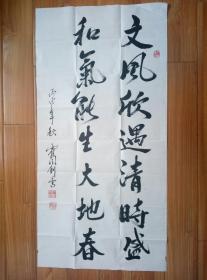 文风欣遇清時盛
和氣能生大地春
年秋